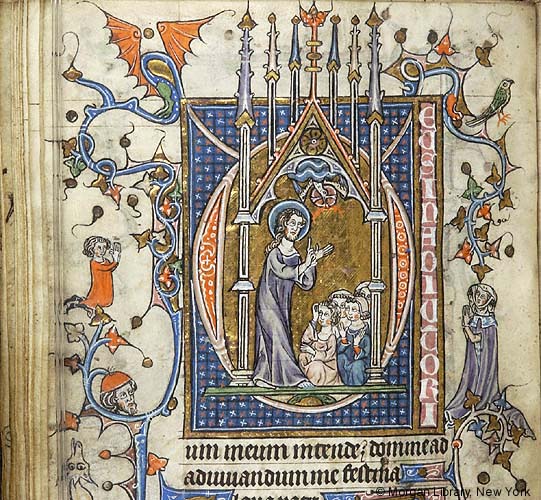 DEUSINADIUTORI
um meum intende: domine ad
adiuuandum me festina
© Morgan Library, New York